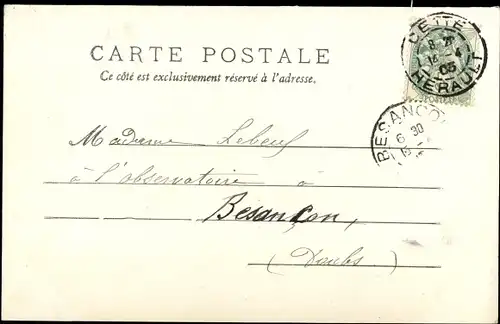 CARTE POSTALE
Ce côté est exclusivement réservé à l'adresse.
CETTE
HERAULT
05
BESANCON
6 30
Madame Lebeuf
à l'observatoire à
Besançon,
(Doubs)